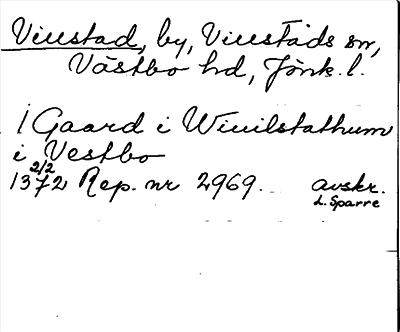 Viustad, by, Viustads sn,
Västbo hd, Jönk. l.
1 Gaard i Wiuilstathum
i Vestbo
1372 2/2 Rep. nr 2969. avskr.
L. Sparre